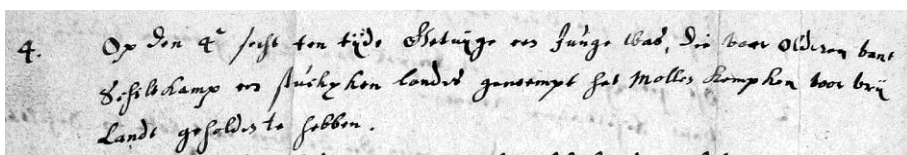 4. Op den 4e secht ten tijde Getuige een Junge was, die voor olderen vant
Schiltkamp een stuckxken landes genoempt het Mollen Kempken voor vrij
Landt geholden te hebben.